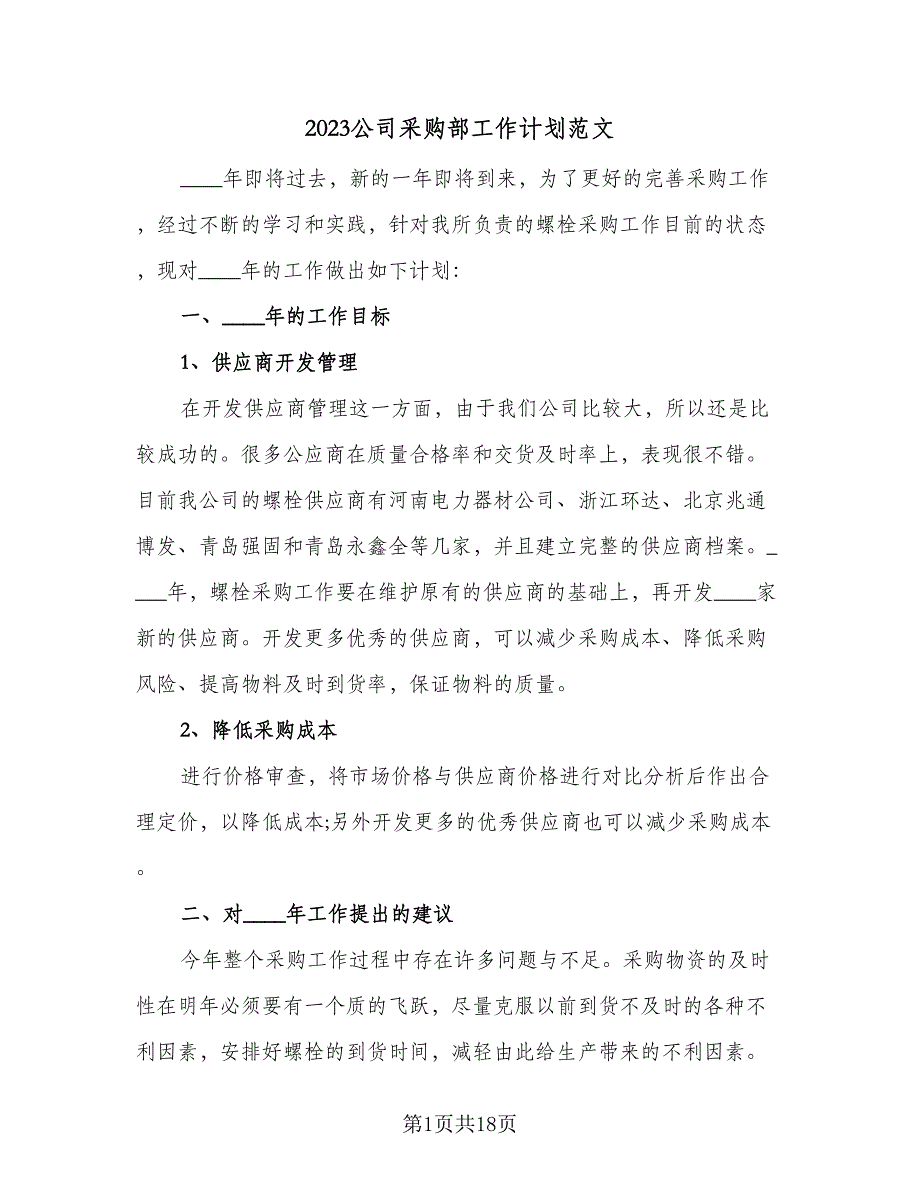 2023公司采购部工作计划范文
____年即将过去，新的一年即将到来，为了更好的完善采购工作
，经过不断的学习和实践，针对我所负责的螺栓采购工作目前的状态
，现对____年的工作做出如下计划：
一、____年的工作目标
1、供应商开发管理
在开发供应商管理这一方面，由于我们公司比较大，所以还是比
较成功的。很多公应商在质量合格率和交货及时率上，表现很不错。
目前我公司的螺栓供应商有河南电力器材公司、浙江环达、北京兆通
博发、青岛强固和青岛永鑫全等几家，并且建立完整的供应商档案。_
___年，螺栓采购工作要在维护原有的供应商的基础上，再开发____家
新的供应商。开发更多优秀的供应商，可以减少采购成本、降低采购
风险、提高物料及时到货率，保证物料的质量。
2、降低采购成本
进行价格审查，将市场价格与供应商价格进行对比分析后作出合
理定价，以降低成本;另外开发更多的优秀供应商也可以减少采购成本
。
二、对____年工作提出的建议
今年整个采购工作过程中存在许多问题与不足。采购物资的及时
性在明年必须要有一个质的飞跃，尽量克服以前到货不及时的各种不
利因素，安排好螺栓的到货时间，减轻由此给生产带来的不利因素。
第1页共18页